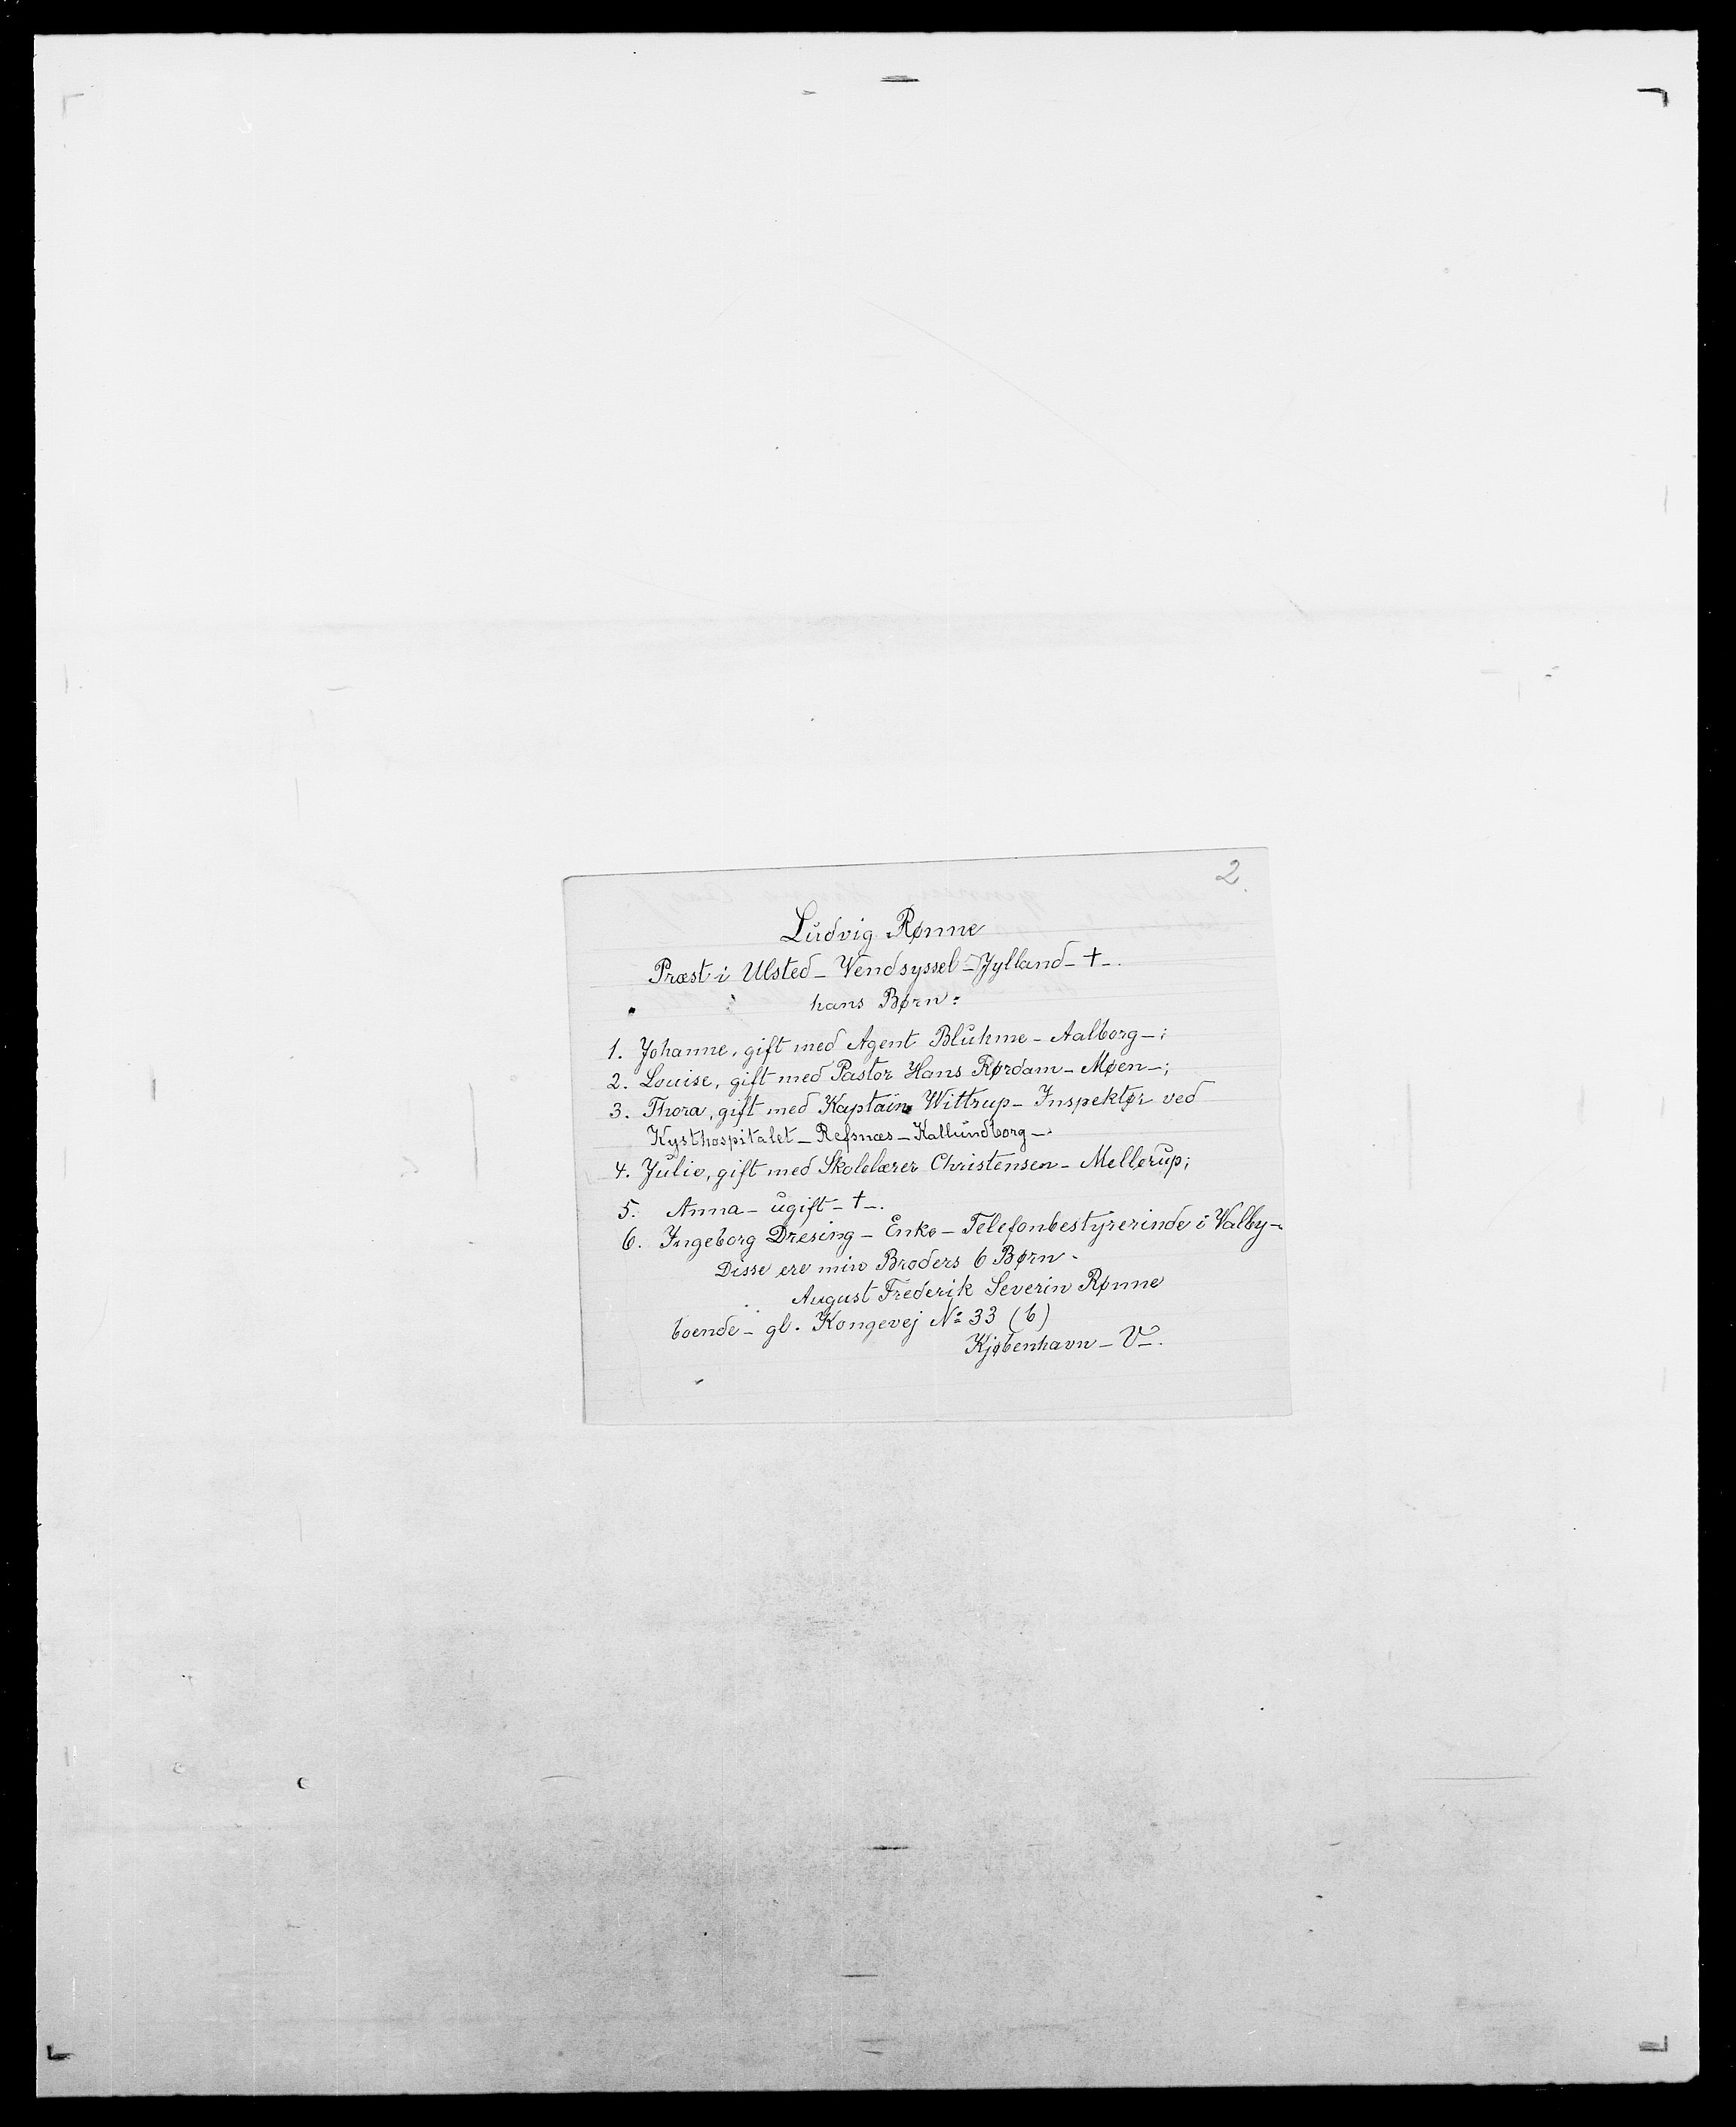 2.
Ludvig Rønne
Præst i Ulsted – Vendsyssel – Jylland – † –.
hans Børn:
1. Johanne, gift med Agent Bluhme – Aalborg –;
2. Louise, gift med Pastor Hans Rørdam – Møen –;
3. Thora, gift med Kaptain Wittrup – Inspektør ved
Kysthospitalet – Refsnæs – Kallundborg –.
4. Julie, gift med Skolelærer Christensen – Mellerup;
5. Anna – ugift – † –.
6. Ingeborg Dresing – Enke – Telefonbestyrerinde i Valby –.
Disse ere min Broders 6 Børn.
August Frederik Severin Rønne
boende – gl. Kongevej No 33 (b)
Kjøbenhavn – V –.